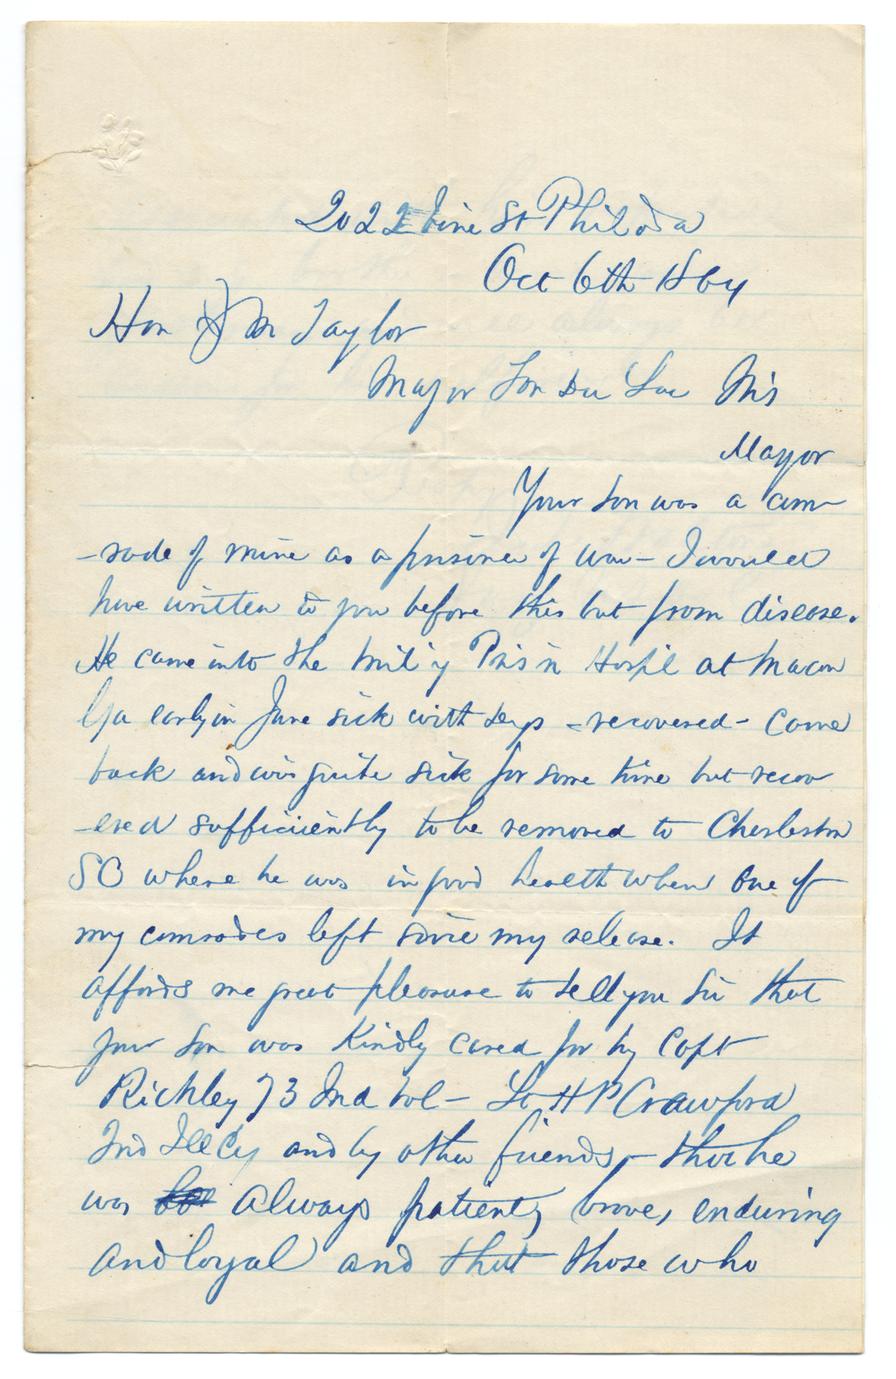 2022 Vine St Philada
Oct 6th 1864
Hon J M Taylor
Mayor Fon Du Lac Wis
Mayor
Your son was a com
-rade of mine as a prisoner of war - I would
have written to you before this but from disease.
He came into the Mil'y Pris'n Hosp'l at Macon
Ga early in June sick with - recovered - came
back and was quite sick for some time but recov
-ered sufficiently to be removed to Charleston
SC where he was in good health when one of
my comrades left since my release. It
affords me great pleasure to tell you Sir that
your son was Kindly cared for by Capt
Richley 73 Ind Vol - Lt H P Crawford
2nd Ill Cy and by other friends, - that he
was always patient, brave, enduring
and loyal and that those who